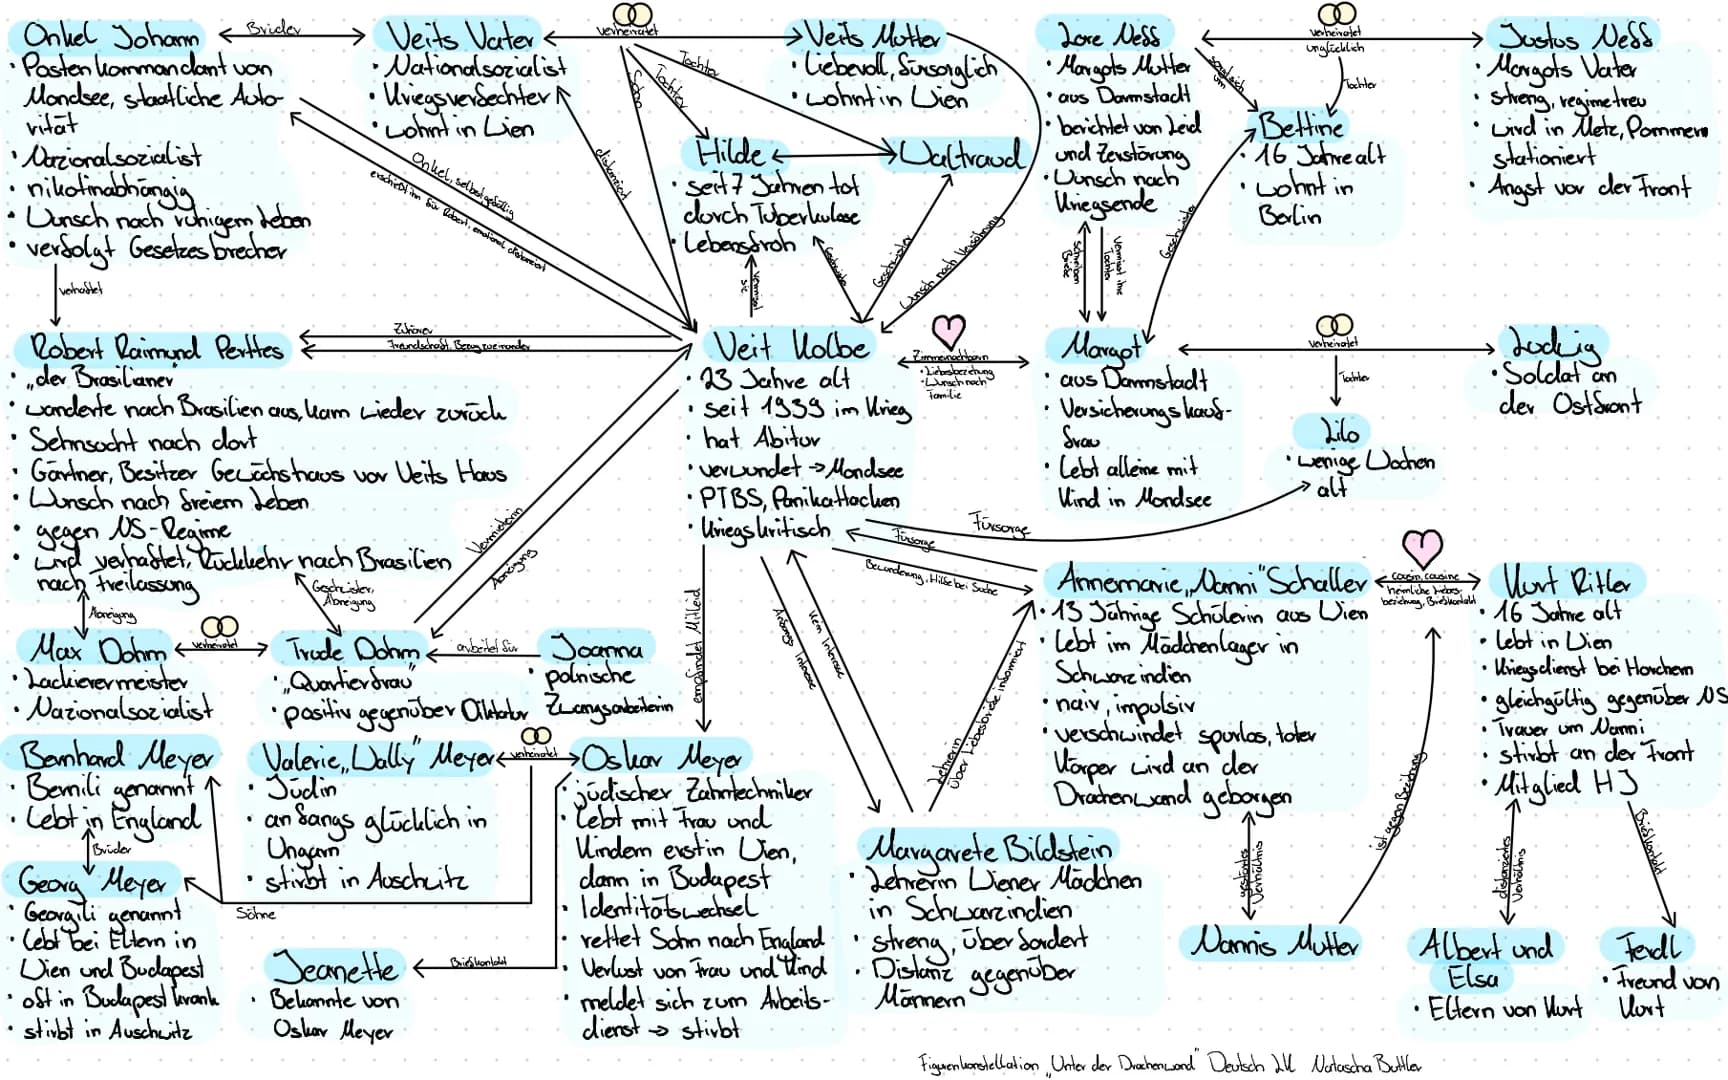 Onkel Johann
· Postenkommandant von
Mondsee, staatliche Auto-
rität
· Nazionalsozialist
· nikotinabhängig
· Wunsch nach ruhigem Leben
· verfolgt Gesetzesbrecher
Brüder
Veits Vater
· Nationalsozialist
· Kriegsverfechter
· wohnt in Wien
verheiratet
Veits Mutter
· Liebevoll, fürsorglich
· wohnt in Wien
Sohn
Tochter
Tochter
Hilde
· seit 7 Jahren tot
durch Tuberkulose
· Lebensfroh
Waltraud
Lore Neff
· Margots Mutter
· aus Darmstadt
· berichtet von Leid
und Zerstörung
· Wunsch nach
Kriegsende
verheiratet
unglücklich
Tochter
Justus Neff
· Margots Vater
· streng, regimetreu
· wird in Metz, Pommern
stationiert
· Angst vor der Front
sorgt sich
um
Bettine
· 16 Jahre alt
· wohnt in
Berlin
Onkel, selbstgefällig
erschießt ihn für Robert, emotional distanziert
distanziert
vermisst
sie
Geschwister
Geschwister
Wunsch nach Versöhnung
schreiben
Briefe
vermisst ihre
Tochter
Geschwister
verhaftet
Robert Raimund Perttes
· „der Brasilianer"
· wanderte nach Brasilien aus, kam wieder zurück
· Sehnsucht nach dort
· Gärtner, Besitzer Gewächshaus vor Veits Haus
· Wunsch nach freiem Leben
· gegen NS-Regime
· wird verhaftet, Rückkehr nach Brasilien
nach Freilassung
Zuhörer
Freundschaft, Bezug zueinander
Veit Kolbe
· 23 Jahre alt
· seit 1939 im Krieg
· hat Abitur
· verwundet → Mondsee
· PTBS, Panikattacken
· Kriegskritisch
Zimmernachbarn
· Liebesbeziehung
· Wunsch nach
Familie
Margot
· aus Darmstadt
· Versicherungskauf-
frau
· Lebt alleine mit
Kind in Mondsee
verheiratet
Tochter
Ludwig
· Soldat an
der Ostfront
Lilo
· wenige Wochen
alt
Fürsorge
Fürsorge
Bewunderung, Hilfe bei Suche
Vermieterin
Abneigung
Abneigung
Geschwister,
Abneigung
Max Dohm
· Lackierermeister
· Nazionalsozialist
verheiratet
Trude Dohm
· „Quartierfrau"
· positiv gegenüber Diktatur
arbeitet für
Joanna
· polnische
Zwangsarbeiterin
empfindet Mitleid
Anfangs Interesse
kein Interesse
Lehrerin
über Liebesbriefe informiert
Annemarie „Nanni" Schaller
· 13 Jährige Schülerin aus Wien
· Lebt im Mädchenlager in
Schwarzindien
· naiv, impulsiv
· verschwindet spurlos, toter
Körper wird an der
Drachenwand geborgen
cousin, cousine
heimliche Liebes-
beziehung, Briefkontakt
Kurt Ritler
· 16 Jahre alt
· Lebt in Wien
· Kriegsdienst bei Horchern
· gleichgültig gegenüber NS
· Trauer um Nanni
· stirbt an der Front
· Mitglied HJ
Bernhard Meyer
· Bernili genannt
· Lebt in England
Brüder
Georg Meyer
· Georgili genannt
· Lebt bei Eltern in
Wien und Budapest
· oft in Budapest krank
· stirbt in Auschwitz
Valerie „Wally" Meyer
· Jüdin
· anfangs glücklich in
Ungarn
· stirbt in Auschwitz
verheiratet
Söhne
Oskar Meyer
· jüdischer Zahntechniker
· Lebt mit Frau und
Kindern erst in Wien,
dann in Budapest
· Identitätswechsel
· rettet Sohn nach England
· Verlust von Frau und Kind
· meldet sich zum Arbeits-
dienst → stirbt
Briefkontakt
Jeanette
· Bekannte von
Oskar Meyer
Margarete Bildstein
· Lehrerin Wiener Mädchen
in Schwarzindien
· streng, überfordert
· Distanz gegenüber
Männern
gestörtes
Verhältnis
ist gegen Beziehung
Nannis Mutter
distanziertes
Verhältnis
Briefkontakt
Albert und
Elsa
· Eltern von Kurt
Ferdl
· Freund von
Kurt
Figurenkonstellation „Unter der Drachenwand" Deutsch LK Natascha Buttler